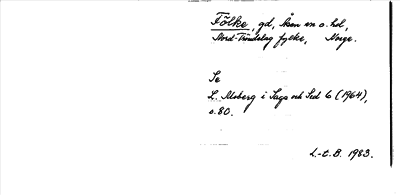 Fölke, gd, Åsen sn o. hd,
Nord-Tröndelag fylke, Norge.
Se
L. Alsberg i Saga och Sed 6 (1964),
s. 80.
L.-E. B. 1983.